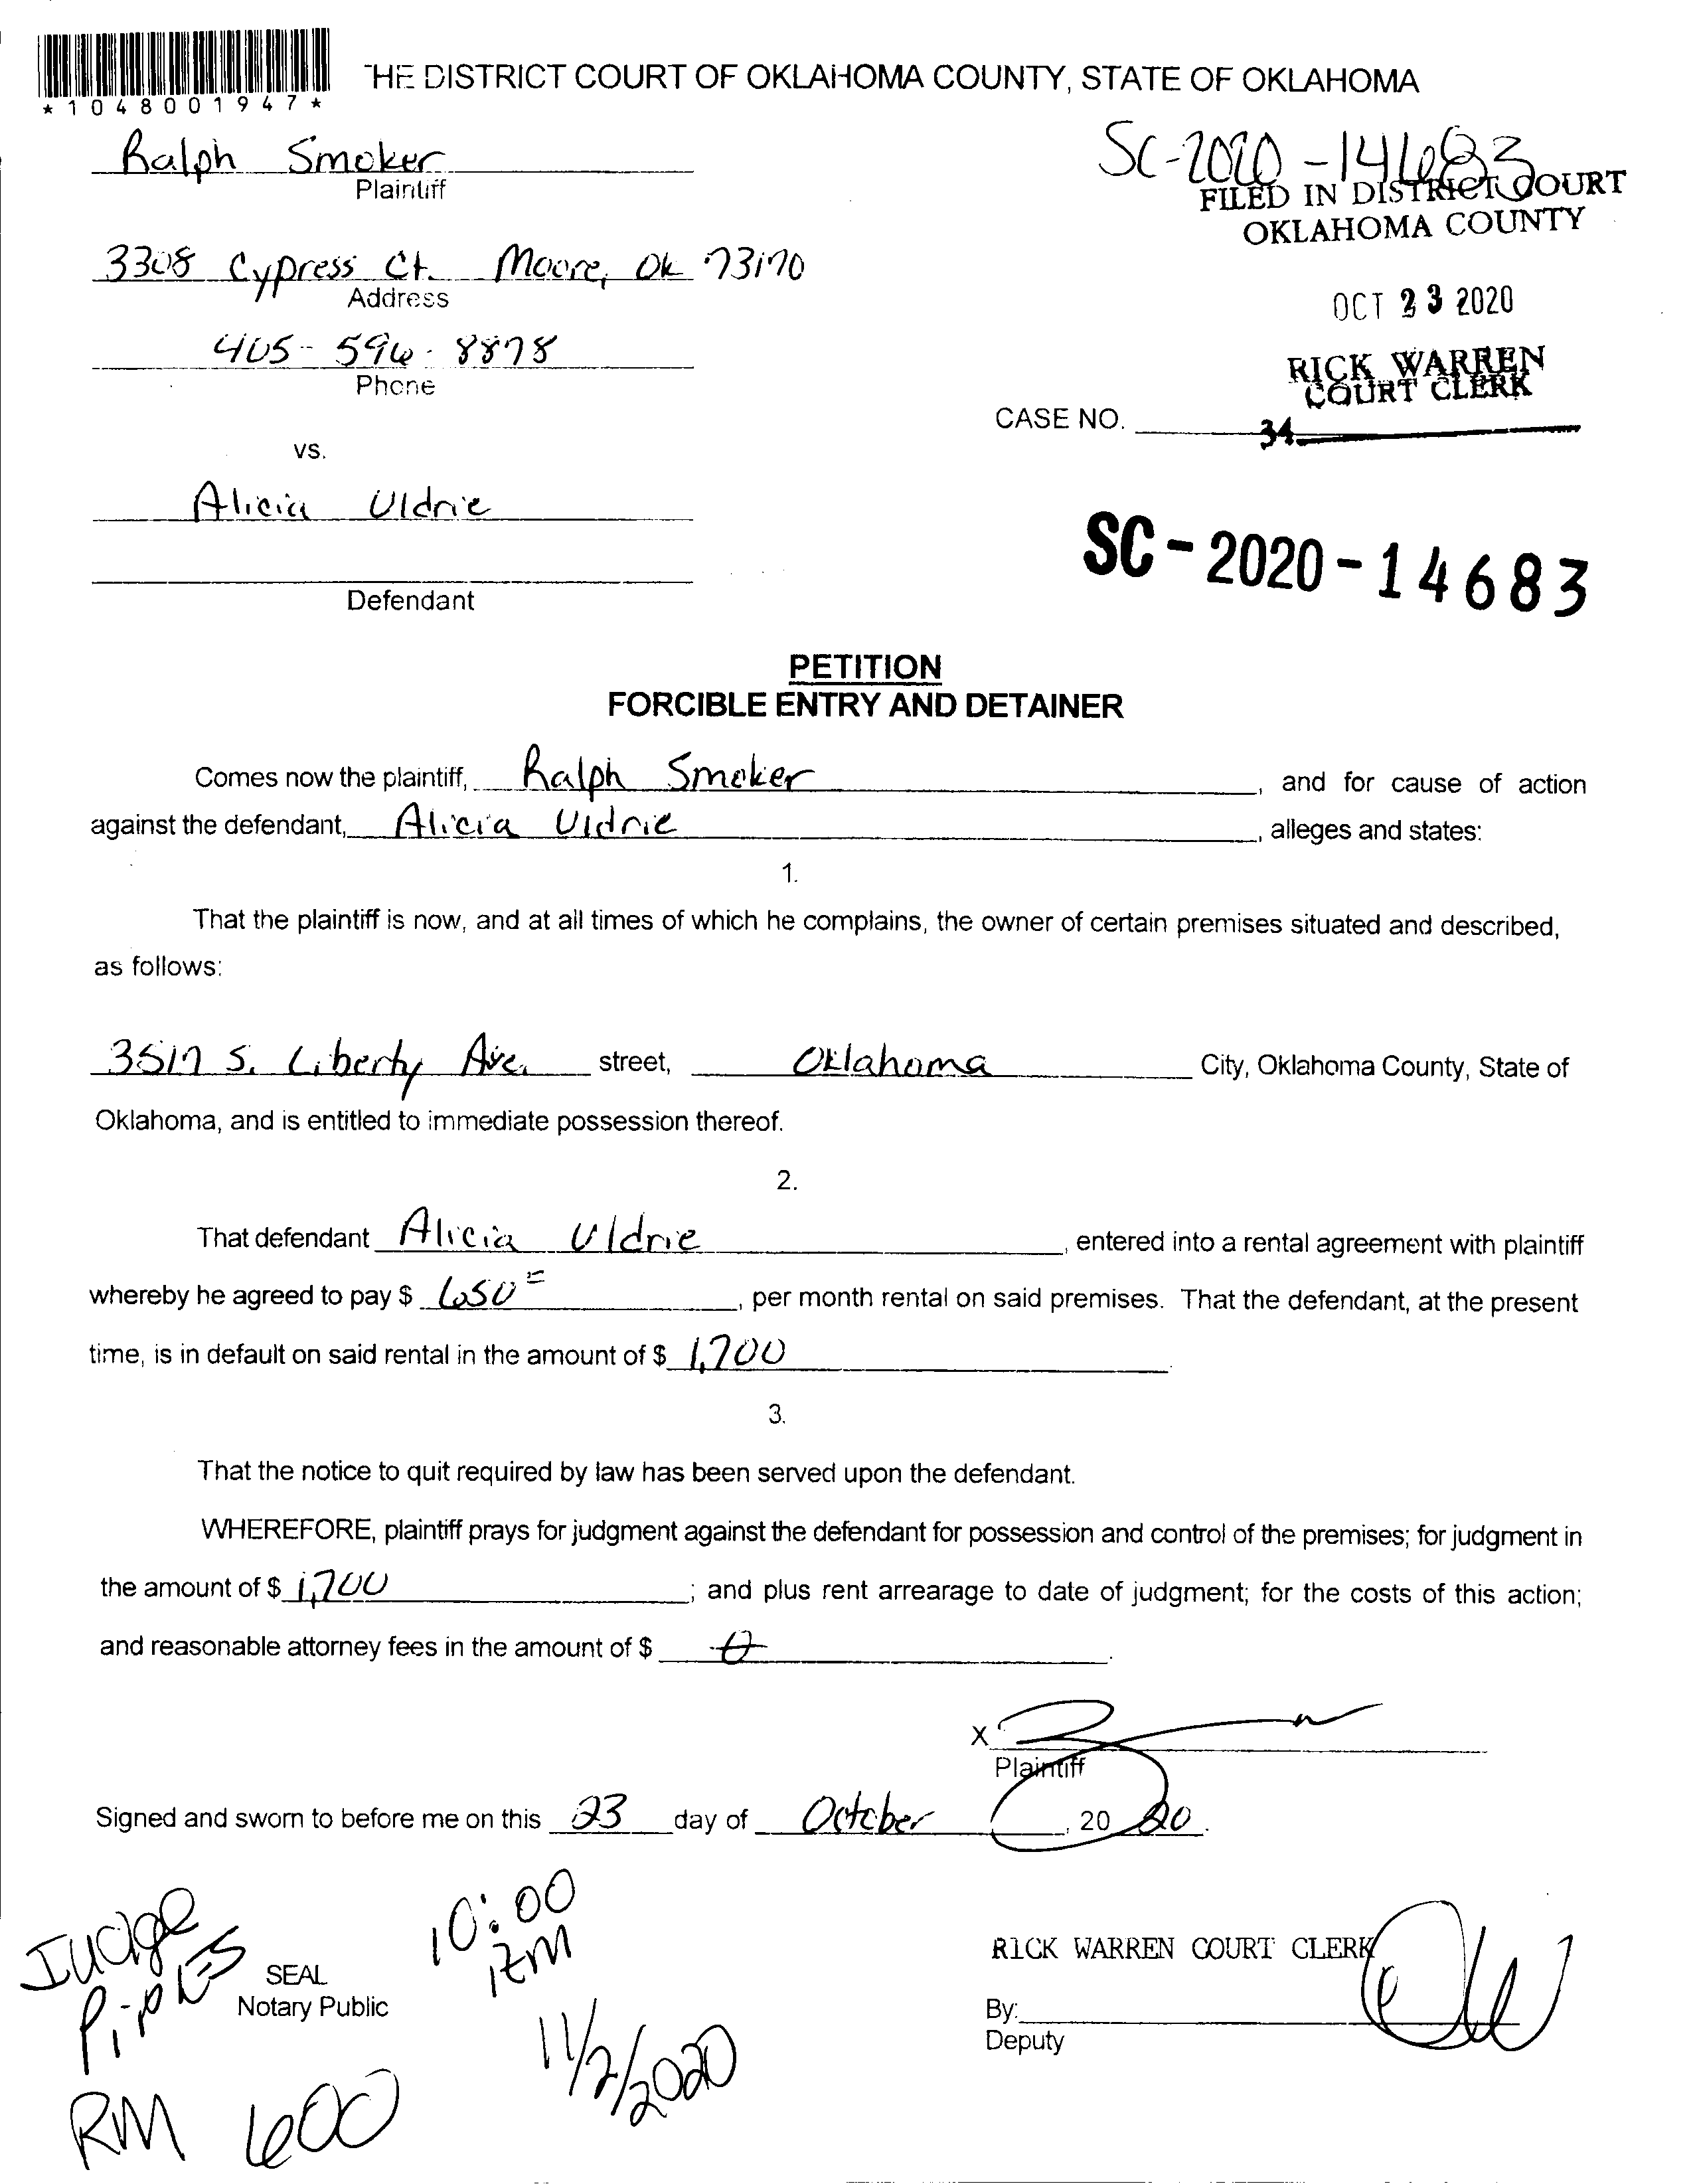 *1048001947*
THE DISTRICT COURT OF OKLAHOMA COUNTY, STATE OF OKLAHOMA
Ralph Smoker
Plaintiff
SC-2020-14683
FILED IN DISTRICT COURT
OKLAHOMA COUNTY
3308 Cypress Ct. Moore, Ok 73170
Address
OCT 23 2020
405-596-8878
Phone
RICK WARREN
COURT CLERK
CASE NO.
34
vs.
Alicia Uldrie
Defendant
SC-2020-14683
PETITION
FORCIBLE ENTRY AND DETAINER
Comes now the plaintiff, Ralph Smoker, and for cause of action
against the defendant, Alicia Uldrie, alleges and states:
1.
That the plaintiff is now, and at all times of which he complains, the owner of certain premises situated and described,
as follows:
3517 S. Liberty Ave. street, Oklahoma City, Oklahoma County, State of
Oklahoma, and is entitled to immediate possession thereof.
2.
That defendant Alicia Uldrie, entered into a rental agreement with plaintiff
whereby he agreed to pay $ 650=, per month rental on said premises. That the defendant, at the present
time, is in default on said rental in the amount of $ 1,700.
3.
That the notice to quit required by law has been served upon the defendant.
WHEREFORE, plaintiff prays for judgment against the defendant for possession and control of the premises; for judgment in
the amount of $ 1,700; and plus rent arrearage to date of judgment; for the costs of this action;
and reasonable attorney fees in the amount of $ 0.
X
Plaintiff
Signed and sworn to before me on this 23 day of October, 2020.
Judge
Pipkes
10:00
Am
SEAL
Notary Public
RICK WARREN COURT CLERK
By:
Deputy
11/2/2020
RM 600